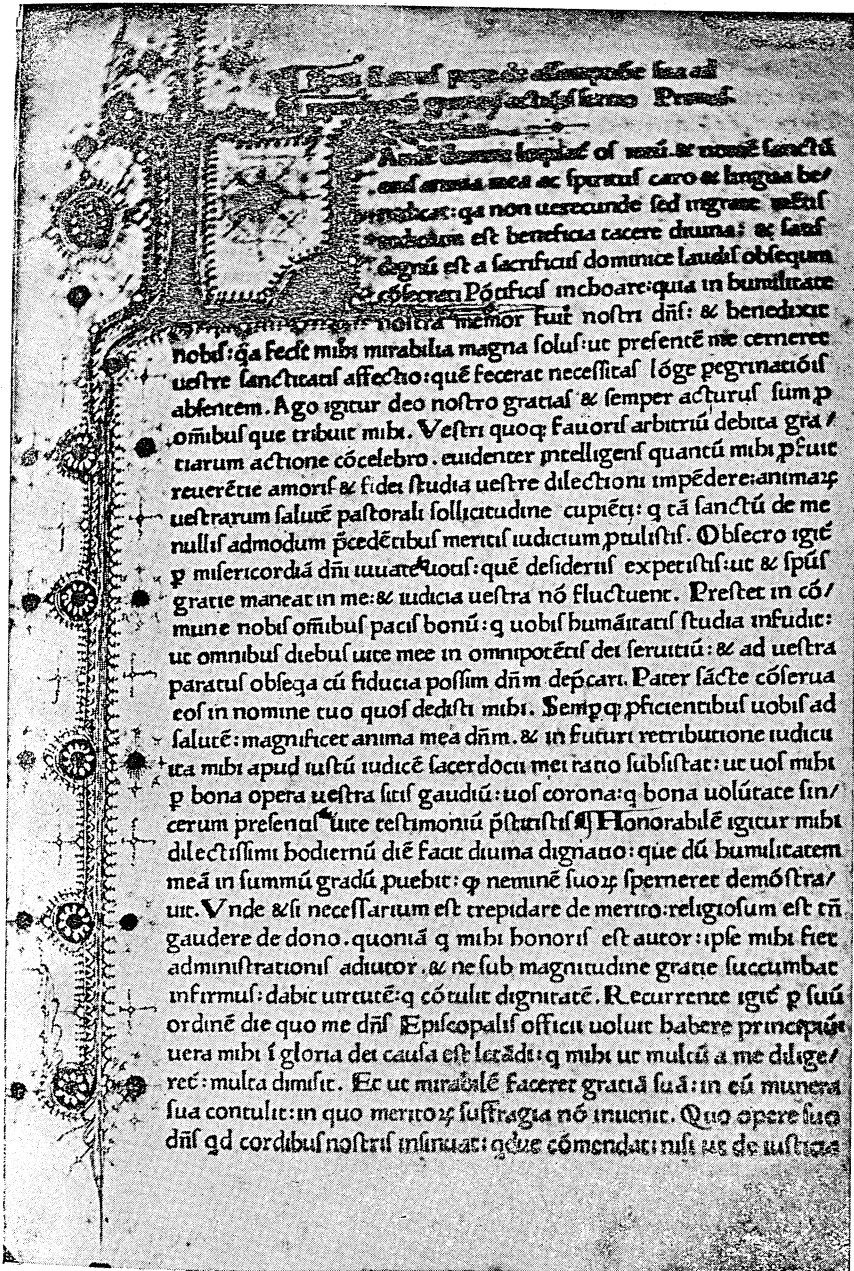 Leonis pape de assumptione sua ad
Primus.
Laudem domini loquat᷑ os meū. & nomē sanctū
eius anima mea ac spiritus caro & lingua be/
nedicat: qa non uerecunde sed ingrate mētis
indicium est beneficia tacere diuina: & satis
dignū est a sacrificiis dominice laudis obsequium
cōsecrati Pōtificis inchoare: quia in humilitate
nostra memor fuit nostri dn̄s: & benedixit
nobis: q̄a fecit mihi mirabilia magna solus: ut presentē me cerneret
uestre sanctitatis affectio: quē fecerat necessitas lōge pegrinatiōis
absentem. Ago igitur deo nostro gratias & semper acturus sum ꝓ
om̄ibus que tribuit mihi. Vestri quoqꝫ fauoris arbitriū debita gra/
tiarum actione cōcelebro. euidenter intelligens quantū mihi ꝓfuit
reuerētie amoris & fidei studia uestre dilectioni impēdere: animaꝝ
uestrarum salutē pastorali sollicitudine cupiēti: q tā sanctū de me
nullis admodum p̄cedētibus meritis iudicium ꝓtulistis. Obsecro igit᷑
ꝑ misericordiā dn̄i iuuate uotis: quē desideriis expetistis: ut & sp̄us
gratie maneat in me: & iudicia uestra nō fluctuent. Prestet in cō/
mune nobis om̄ibus pacis bonū: q uobis humāitatis studia infudit:
ut omnibus diebus uite mee in omnipotētis dei seruitiū: & ad uestra
paratus obseqa cū fiducia possim dn̄m dep̄cari. Pater sācte cōserua
eos in nomine tuo quos dedisti mihi. Sempqꝫ ꝓficientibus uobis ad
salutē: magnificet anima mea dn̄m. & in futuri retributione iudicii
ita mihi apud iustū iudicē sacerdocii mei ratio subsistat: ut uos mihi
ꝑ bona opera uestra sitis gaudiū: uos corona: q bona uolūtate sin/
cerum presentis uite testimoniū p̄stitistis ¶ Honorabilē igitur mihi
dilectissimi hodiernū diē facit diuina dignatio: que dū humilitatem
meā in summū gradū ꝓuehit: ꝙ neminē suoꝝ sperneret demōstra/
uit. Vnde & si necessarium est trepidare de merito: religiosum est tn̄
gaudere de dono. quoniā q mihi honoris est autor: ipse mihi fiet
administrationis adiutor. & ne sub magnitudine gratie succumbat
infirmus: dabit uirtutē: q cōtulit dignitatē. Recurrente igit᷑ ꝑ suū
ordinē die quo me dn̄s Episcopalis officii uoluit habere principiū:
uera mihi ī gloria dei causa est letādi: q mihi ut multū a me dilige/
ret᷑: multa dimisit. Et ut mirabilē faceret gratiā suā: in eū munera
sua contulit: in quo meritoꝝ suffragia nō inuenit. Quo opere suo
dn̄s qd cordibus nostris insinuat: qdue cōmendat: nisi ut de iusticia